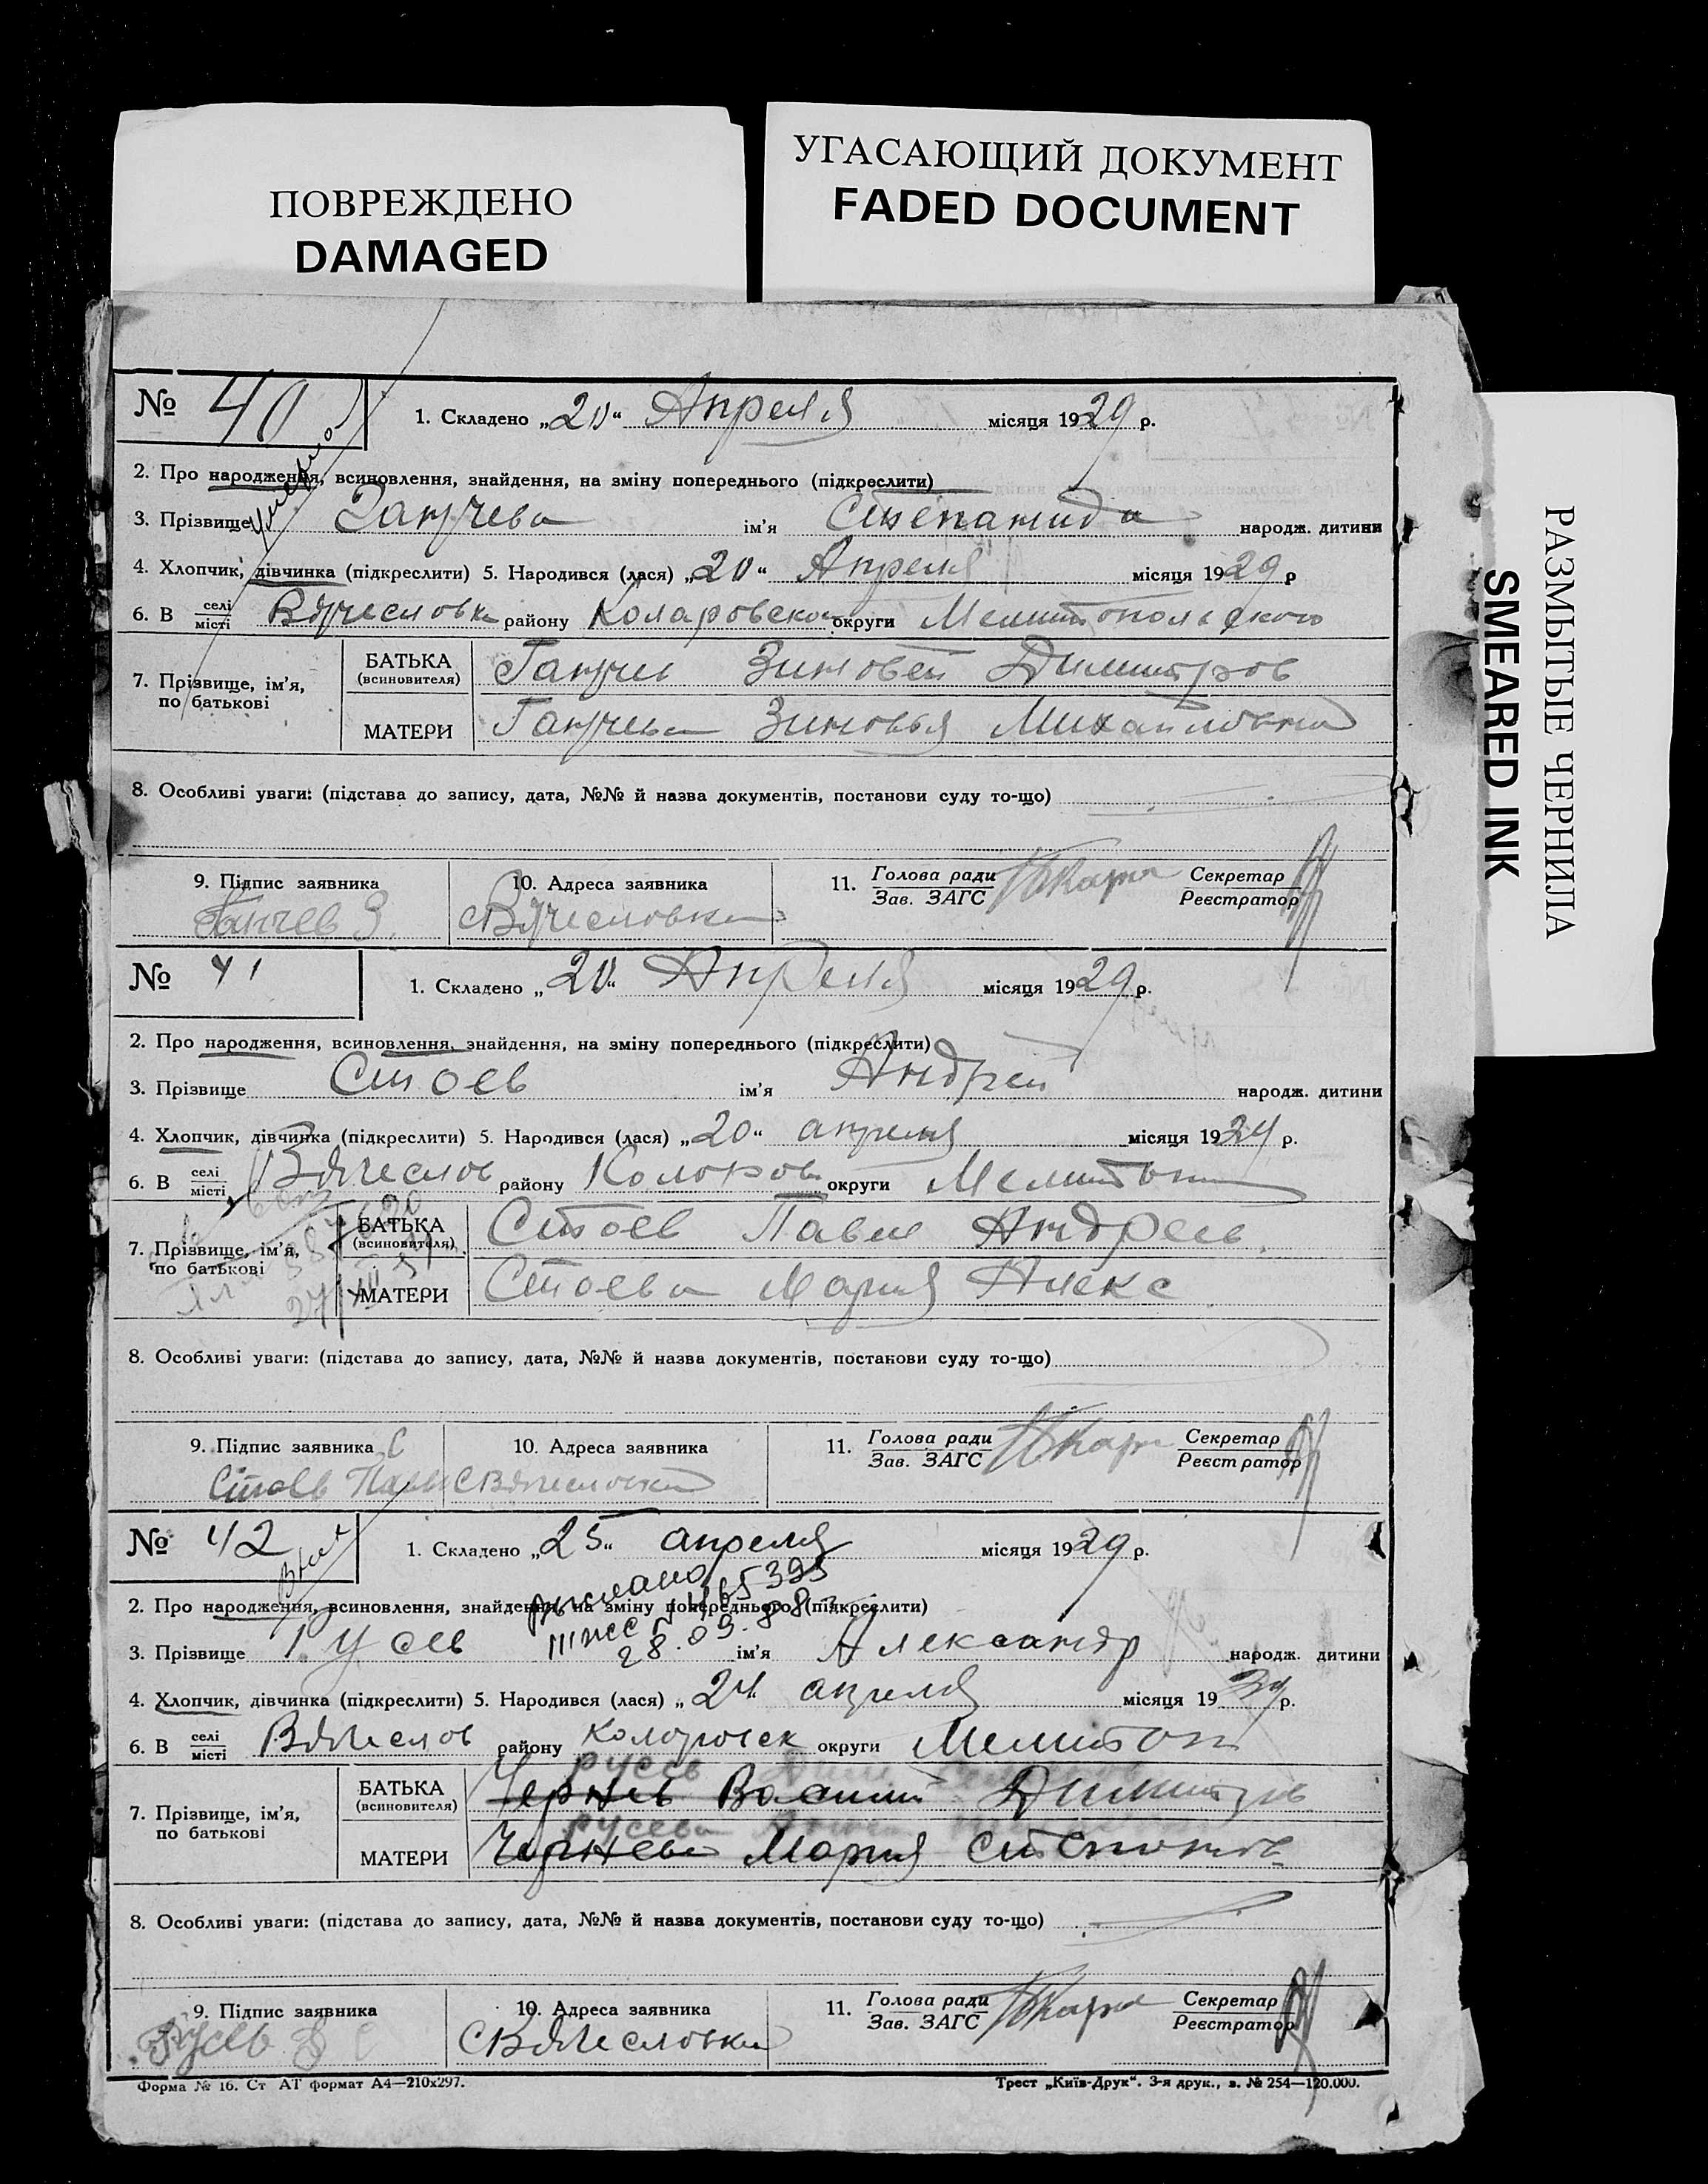 ПОВРЕЖДЕНО
DAMAGED
УГАСАЮЩИЙ ДОКУМЕНТ
FADED DOCUMENT
РАЗМЫТЫЕ ЧЕРНИЛА
SMEARED INK
№ 40
1. Складено „20“ Апреля місяця 1929 р.
умерло
2. Про народження, всиновлення, знайдення, на зміну попереднього (підкреслити)
3. Прізвище Ганчева ім'я Степанида народж. дитини
4. Хлопчик, дівчинка (підкреслити) 5. Народився (лася) „20“ Апреля місяця 1929 р
6. В селі/місті Вячесловка району Коларовском округи Мелитопольского
7. Прізвище, ім'я, по батькові
БАТЬКА (всиновителя) Ганчев Зиновей Димитров
МАТЕРИ Ганчева Зиновья Михайловна
8. Особливі уваги: (підстава до запису, дата, №№ й назва документів, постанови суду то-що)
9. Підпис заявника 10. Адреса заявника 11. Голова ради/Зав. ЗАГС Секретар/Реєстратор
Ганчев З. С Вячесловка
№ 41
1. Складено „20“ Апреля місяця 1929 р.
2. Про народження, всиновлення, знайдення, на зміну попереднього (підкреслити)
3. Прізвище Стоев ім'я Андрей народж. дитини
4. Хлопчик, дівчинка (підкреслити) 5. Народився (лася) „20“ апреля місяця 1929 р.
6. В селі/місті Вячеслов району Колоров округи Мелитоп
7. Прізвище, ім'я, по батькові
БАТЬКА (всиновителя) Стоев Павел Андреев.
МАТЕРИ Стоева Мария Алекс
8. Особливі уваги: (підстава до запису, дата, №№ й назва документів, постанови суду то-що)
9. Підпис заявника 10. Адреса заявника 11. Голова ради/Зав. ЗАГС Секретар/Реєстратор
Стоев Павел С Вячесловка
№ 42
1. Складено „25“ апреля місяця 1929 р.
2. Про народження, всиновлення, знайдення, на зміну попереднього (підкреслити)
выслано
28.03.
3. Прізвище Гусев ім'я Александр народж. дитини
4. Хлопчик, дівчинка (підкреслити) 5. Народився (лася) „24“ апреля місяця 1929 р.
6. В селі/місті Вячеслов району Колоровск округи Мелитоп
7. Прізвище, ім'я, по батькові
БАТЬКА (всиновителя) Чернев Василий Димитров
МАТЕРИ Чернева Мария Степанов
8. Особливі уваги: (підстава до запису, дата, №№ й назва документів, постанови суду то-що)
9. Підпис заявника 10. Адреса заявника 11. Голова ради/Зав. ЗАГС Секретар/Реєстратор
Гусев С Вячесловка
Форма № 16. Ст АТ формат А4—210х297.
Трест „Київ-Друк“. 3-я друк., з. № 254—120.000.